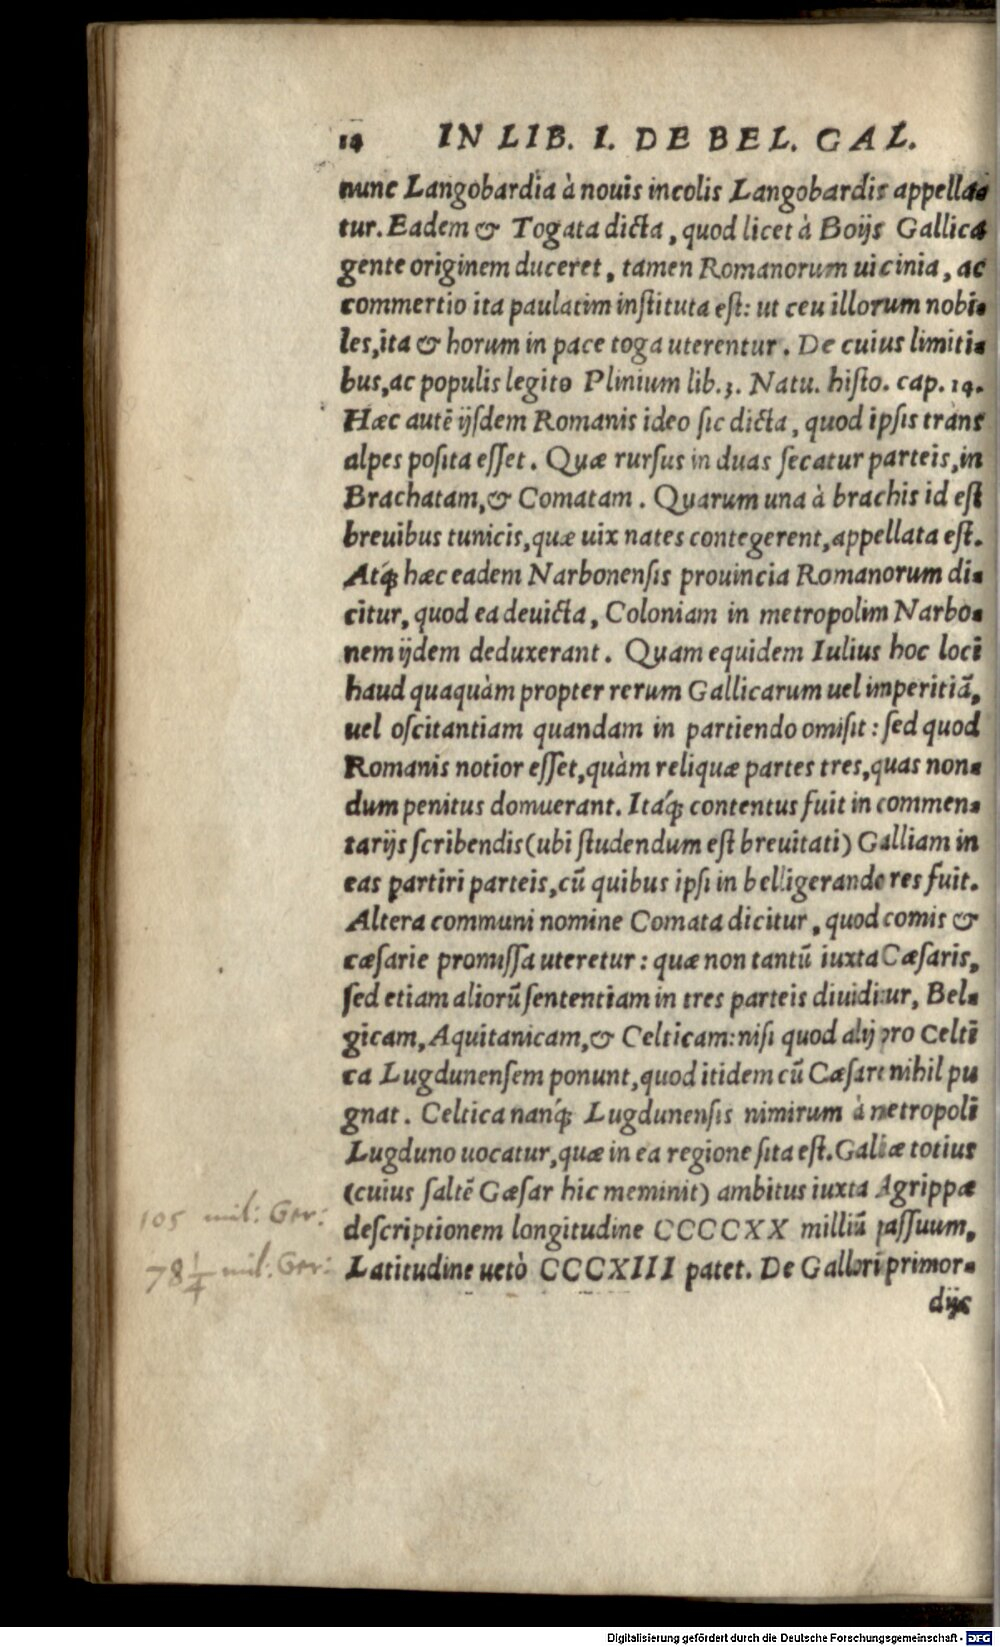 14 IN LIB. I. DE BEL. GAL.
nunc Langobardia à nouis incolis Langobardis appella-
tur. Eadem & Togata dicta, quod licet à Boijs Gallica
gente originem duceret, tamen Romanorum uicinia, ac
commertio ita paulatim instituta est: ut ceu illorum nobi-
les, ita & horum in pace toga uterentur. De cuius limiti-
bus, ac populis legito Plinium lib. 3. Natu. histo. cap. 14.
Hæc autē ijsdem Romanis ideo sic dicta, quod ipsis trans
alpes posita esset. Quæ rursus in duas secatur parteis, in
Brachatam, & Comatam. Quarum una à brachis id est
breuibus tunicis, quæ uix nates contegerent, appellata est.
Atq́; hæc eadem Narbonensis prouincia Romanorum di-
citur, quod ea deuicta, Coloniam in metropolim Narbo-
nem ijdem deduxerant. Quam equidem Iulius hoc loci
haud quaquàm propter rerum Gallicarum uel imperitiā,
uel oscitantiam quandam in partiendo omisit: sed quod
Romanis notior esset, quàm reliquæ partes tres, quas non-
dum penitus domuerant. Itaq́; contentus fuit in commen-
tarijs scribendis (ubi studendum est breuitati) Galliam in
eas partiri parteis, cū quibus ipsi in belligerando res fuit.
Altera communi nomine Comata dicitur, quod comis &
cæsarie promissa uteretur: quæ non tantū iuxta Cæsaris,
sed etiam aliorū sententiam in tres parteis diuiditur, Bel-
gicam, Aquitanicam, & Celticam: nisi quod alij pro Celti
ca Lugdunensem ponunt, quod itidem cū Cæsare nihil pu
gnat. Celtica nanq́; Lugdunensis nimirum à metropoli
Lugduno uocatur, quæ in ea regione sita est. Galliæ totius
(cuius saltē Gæsar hic meminit) ambitus iuxta Agrippæ
105 mil: Ger:
descriptionem longitudine CCCCXX milliū passuum,
78 1/4 mil: Ger:
Latitudine uerò CCCXIII patet. De Gallorū primor-
dijs
Digitalisierung gefördert durch die Deutsche Forschungsgemeinschaft - DFG